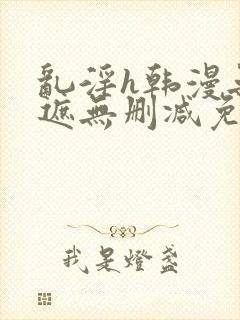 亂淫h韩漫
遮無删减免
我是燈盞